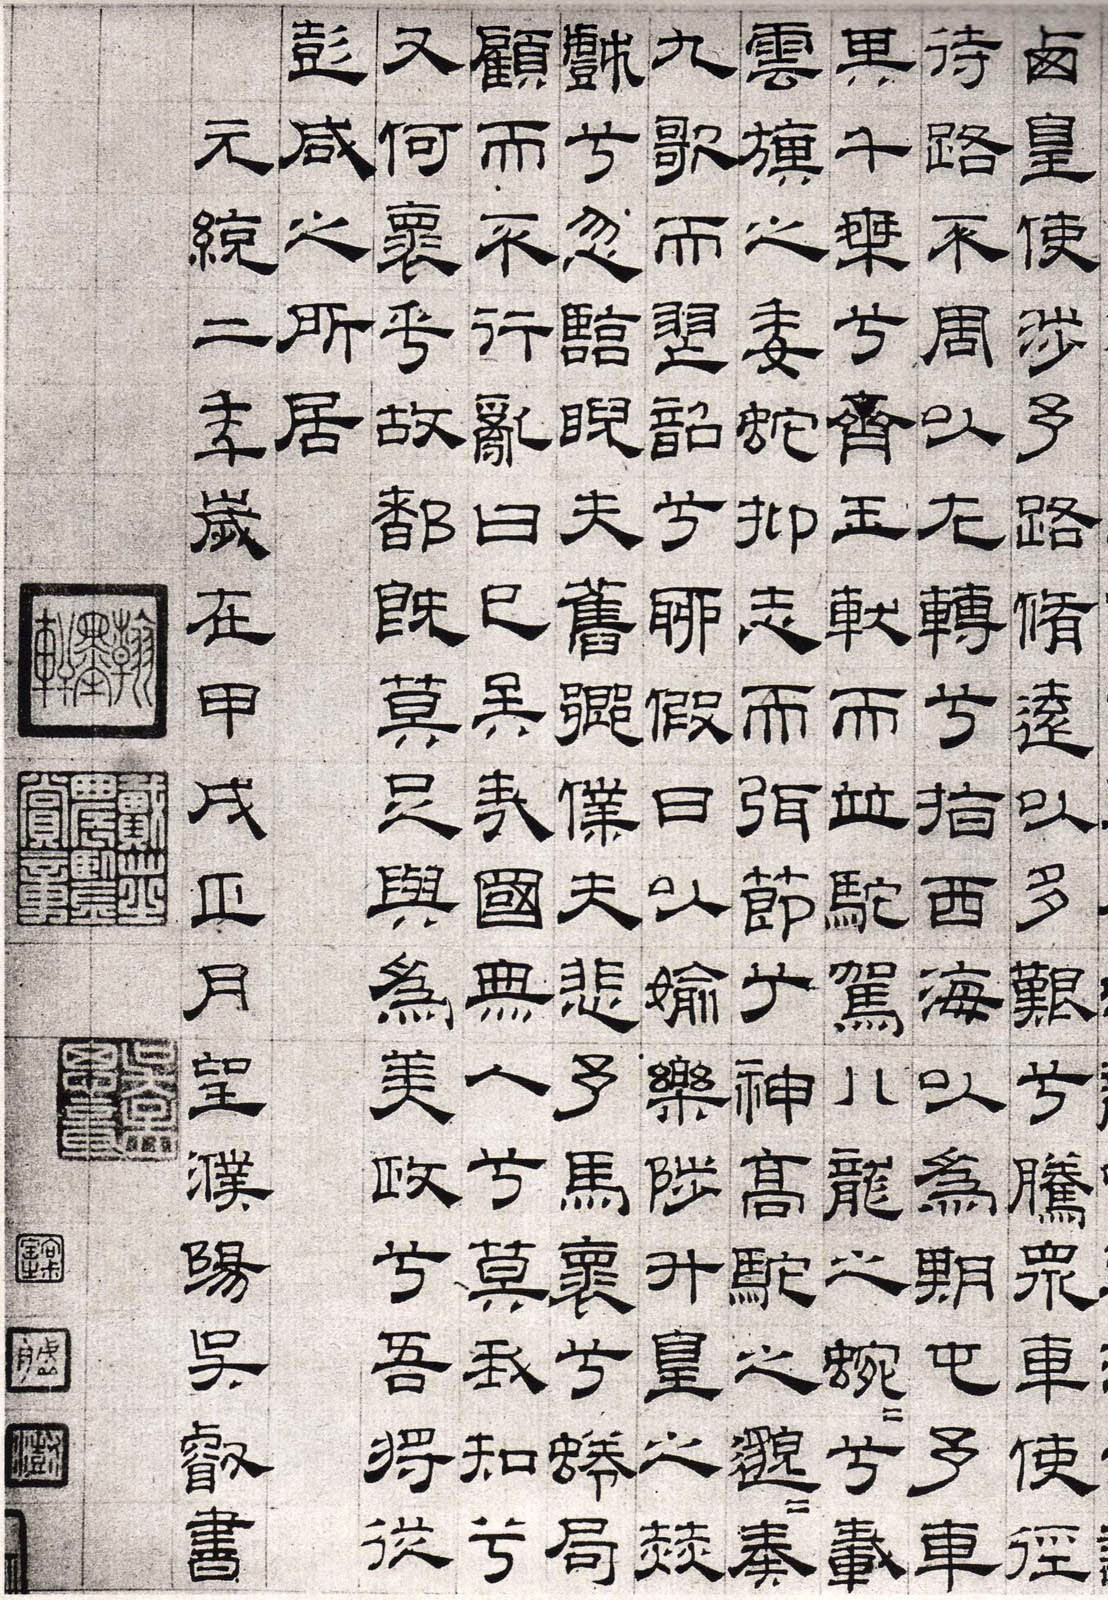 卥皇使涉予路脩遠以多艱兮騰眾車使徑
待路不周以左轉兮指西海以爲期屯予車
其千乘兮齊玉軑而並駝駕八龍之蜿〻兮載
雲旗之委蛇抑志而弭節兮神高駝之邈〻奏
九歌而䍿韶兮聊假日以媮樂陟升皇之赫
戲兮忽臨睨夫舊鄉僕夫悲予馬懷兮蜷局
顧而不行亂曰已矣哉國無人兮莫我知兮
又何懷乎故都既莫足與爲美政兮吾將從
彭咸之所居
元統二年歲在甲戌正月望濮陽吳叡書
翰墨軒